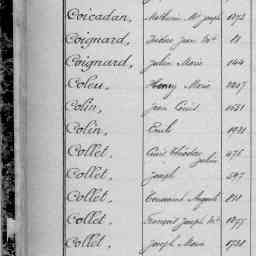 Coicadan, Mathurin Me Joseph 1072
Coignard, Isidore Jean Mie 11
Coignard, Julien Marie 144
Coleu, Henry Marie 1207
Colin, Jean Louis 1451
Colin, Emile 1921
Collet, Louis Théodore Julien 475
Collet, Joseph 597
Collet, Toussaint Auguste 811
Collet, François Joseph Me 1277
Collet, Joseph Marie 1728